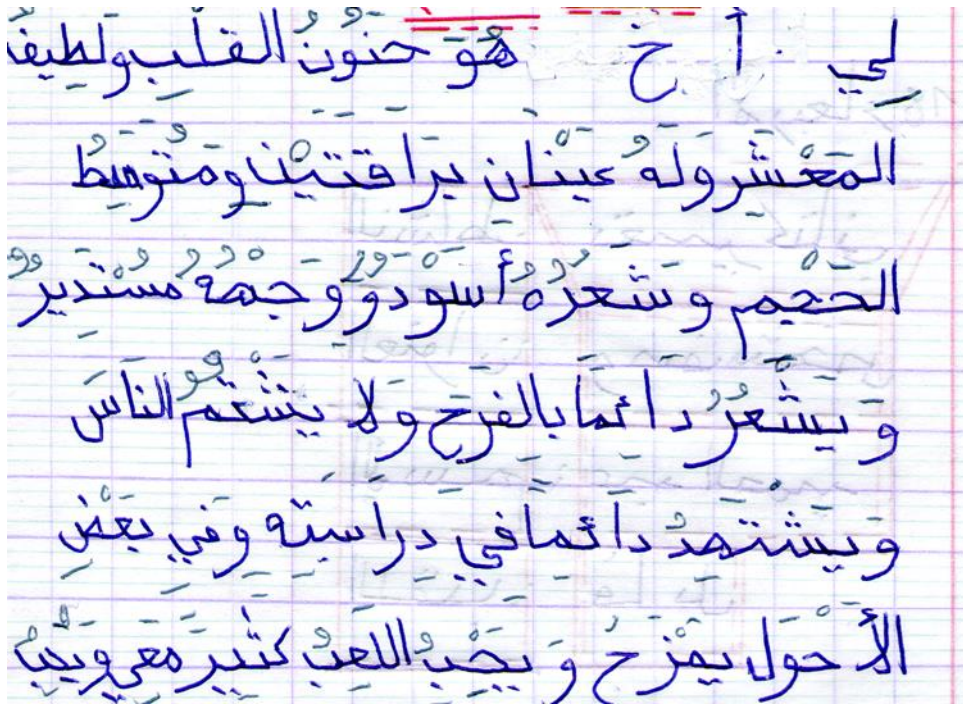 لِي أخ هُوَ حَنُونُ القَلْبِ ولَطِيفُ
المَعْشَرِ وَلَهُ عَيْنَانِ بَرَاقَتَيْنِ وَمُتَوَسِطُ
الحَجْمِ وَشَعْرُهُ أَسْوَدُ وَوَجْهُهُ مُسْتَدِيرٌ
وَيَشْعُرُ دَائِمَا بِالفَرَحِ وَلَا يَشْتُمُ النَاسَ
وَيَشْتَهِدُ دَائِمَا فِي دِرَاسَتِهِ وَفِي بَعْضِ
الأَحْوَلِ يَمْزَحُ وَيُحِبُ اللَعِبُ كَثِيرَ مَعِي وَيُحِبُ